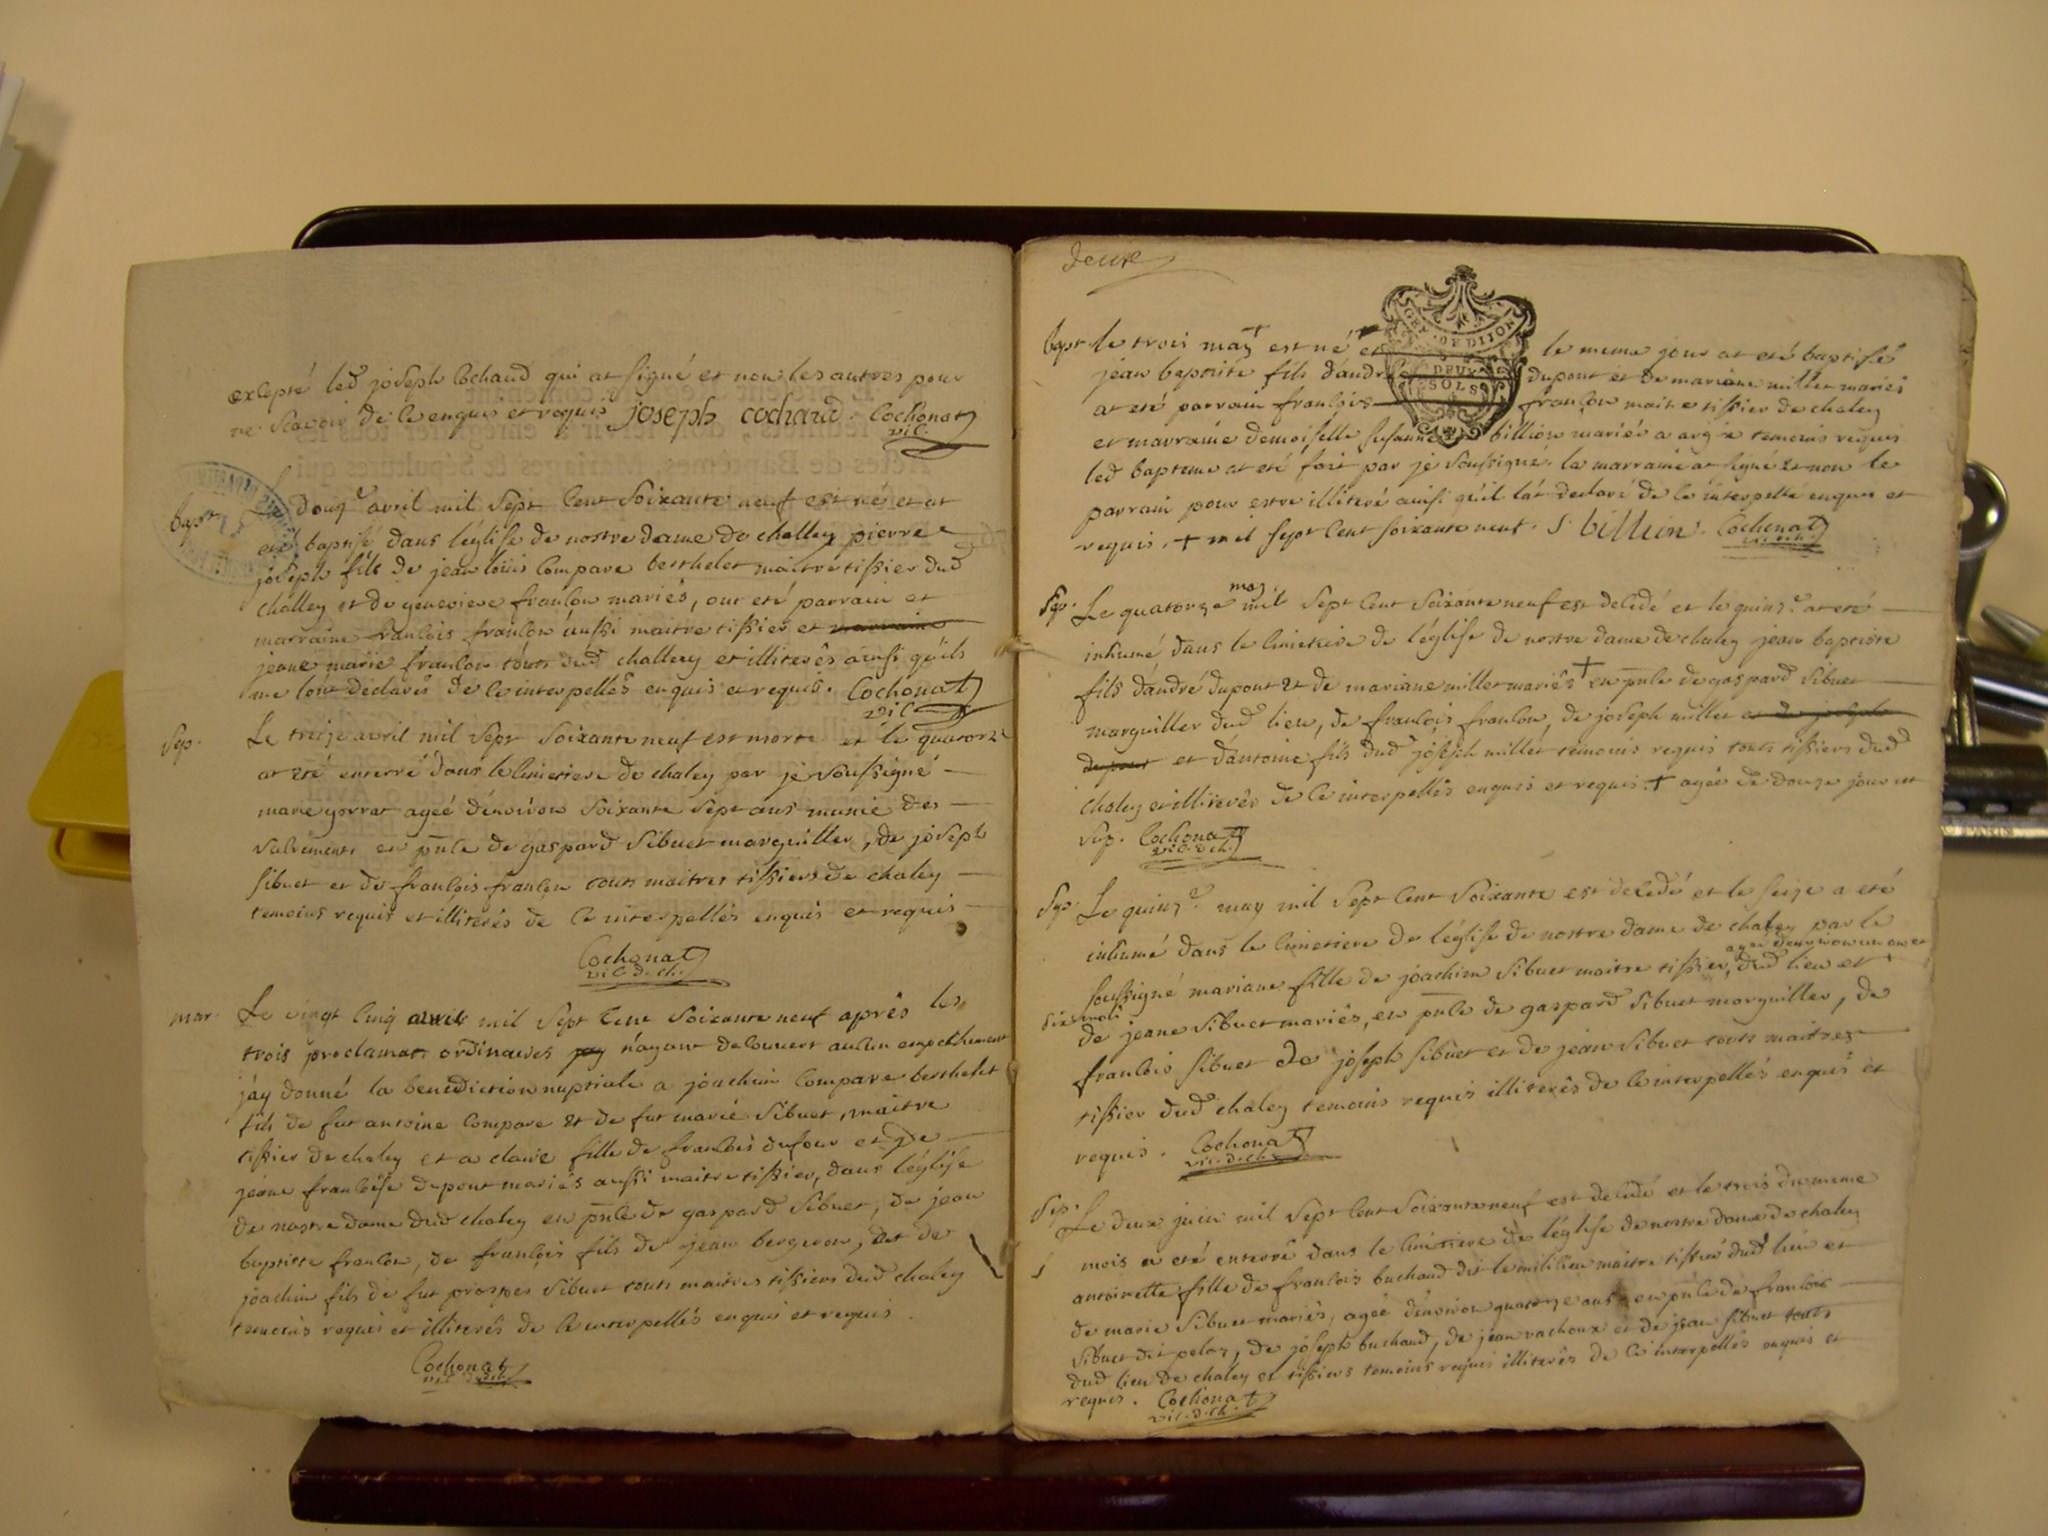 excepté led joseph Cochand qui at signé et non les autres pour
ne scavoir de ce enquis et requis joseph cochand. Cochonat
vic.
bapt. Le douze avril mil sept cent soixante neuf est né et at
eté baptisé dans léglise de nostre dame de challey pierre
joseph fils de jean loüis Compare berthelet maitre tissier dud
challey et de genevieve franlon mariés, ont eté parrain et
marraine franlois franlon aussi maitre tissier et
jeane marie franlon touts dud challey et illiterés ainsi quils
me lont declarés de ce interpellés enquis et requis. Cochonat
vic
Sep. Le treize avril mil sept soixante neuf est morte et le quatorze
at eté enterré dans le cimetiere de chaley par je soussigné
marie gorrat ageé denviron soixante sept ans munie des
sacrements en pnle de gaspard Sibuet marguiller, de joseph
sibuet et de franlois franlon touts maitres tissiers de chaley
temoins requis et illiterés de ce interpellés enquis et requis
Cochonat
vic. d. ch.
mar. Le vingt cinq avril mil sept cent soixante neuf aprés les
trois proclamaons ordinaires nayant decouvert aucun empechement
jáy donné la benediction nuptiale a joachim Compare berthelet
fils de fut antoine Compare et de fut marie Sibuet, maitre
tissier de chaley et a claire fille de franlois dufour et de
jeane franloise dupont mariés aussi maitre tissier, dans léglise
de nostre dame dud chaley en pnle de gaspard Sibuet, de jean
baptiste franlon, de franlois fils de jean bergeron, et de
joachim fils de fut prosper Sibuet touts maitres tissiers dud chaley
temoins requis et illiterés de ce interpellés enquis et requis
Cochonat
vic. d. ch.
deuxe
GEN. DE DIJON
DEUX
SOLS
bapt. le trois may + est né et le meme jour at eté baptisé
jean baptiste fils dandré dupont et de mariane millet mariés
at eté parrain franlois franlon maitre tissier de chaley
et marraine demoiselle susanne billion mariée a temoins requis
led bapteme at eté fait par je soussigné. la marraine at signé et non le
parrain pour estre illiteré ainsi quil lat declaré de ce interpellé enquis et
requis. + mil sept cent soixante neuf. S. billion. Cochonat
vic. d. ch.
Sep. Le quatorze may mil sept cent soixante neuf est decedé et le quinze at eté
inhumé dans le cimetiere de léglise de nostre dame de chaley jean baptiste
fils dandré dupont et de mariane millet mariés + en pnle de gaspard Sibuet
marguiller dud lieu, de franlois franlon, de joseph millet et de joseph
dupont et dantoine fils dud joseph millet temoins requis touts tissiers dud
chaley et illiterés de ce interpellés enquis et requis. + ageé de douze jour
sep. Cochonat
vic. d. ch.
Sep. Le quinze may mil sept cent soixante est decedé et le seize a eté
inhumé dans le cimetiere de léglise de nostre dame de chaley par le
ageé denviron un an et
soussigné mariane fille de joachim Sibuet maitre tissier, dud lieu et
six mois
de jeane Sibuet mariés, en pnle de gaspard Sibuet marguiller, de
franlois Sibuet de joseph Sibuet et de jean Sibuet touts maitres
tissier dud chaley temoins requis illiterés de ce interpellés enquis et
requis. Cochonat
vic. d. ch.
Sep. Le deux juin mil sept cent soixante neuf est decedé et le trois du meme
mois a eté enterré dans le cimetiere de léglise de nostre dame de chaley
antoinette fille de franlois buchand dit le maitre tissier dud lieu et
de marie Sibuet mariés, ageé denviron quatorze ans en pnle de franlois
Sibuet dit pelos, de joseph buchand, de jean vachoux et de jean Sibuet touts
dud lieu de chaley et tissiers temoins requis illiterés de ce interpellés enquis et
requis. Cochonat
vic. d. ch.